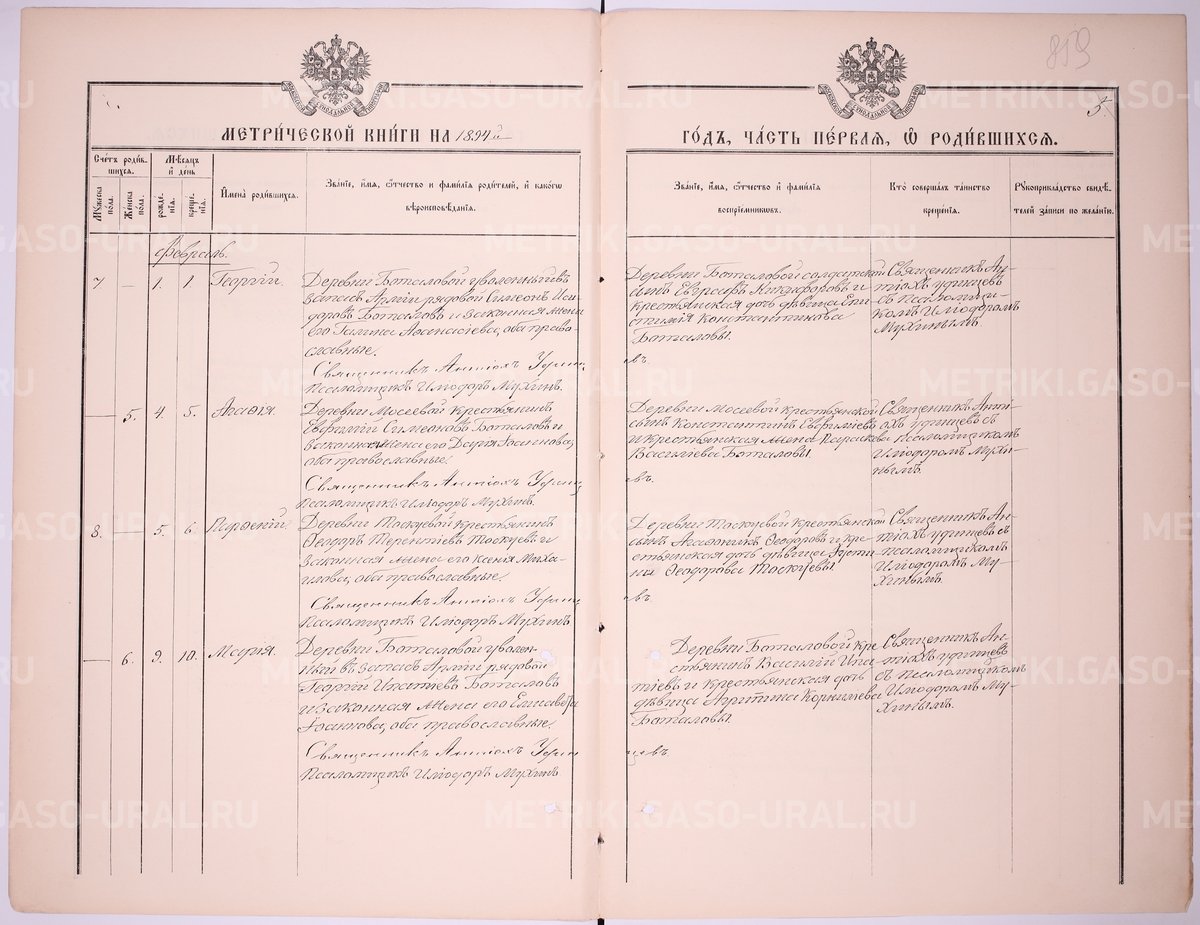 859
5.
МЕТРИ́ЧЕСКОЙ КНИ́ГИ НА 1894й
ГО́ДЪ, ЧА́СТЬ ПЕ́РВАЯ, Ѽ РОДИ́ВШИХСѦ.
Сче́тъ роди́в-
шихся.
Мꙋ́жеска по́ла.
Же́нска по́ла.
Мѣ́сяцъ и҆ де́нь
рожде́-
нїя.
креще́-
нїя.
И҆мена̀ роди́вшихся.
Зва́нїе, и҆́мя, ѻ҆́тчество и҆ фами́лїя роди́телей, и҆ како́гѡ
вѣроисповѣ́данїя.
Зва́нїе, и҆́мя, ѻ҆́тчество и҆ фами́лїя
воспрїе́мниковъ.
Кто̀ соверша́лъ та́инство
креще́нїя.
Рꙋкоприкла́дство свидѣ́-
телей за́писи по жела́нїю.
Февраль.
7 — 1. 1 Георгій.
Деревни Баталовой уволенный въ
запасъ Арміи рядовой Симеонъ Иси-
доровъ Баталовъ и законная жена
его Галина Аѳанасіева, оба право-
славные.
Священникъ Антіохъ Удин
Псаломщикъ Иліодоръ Мухинъ.
Деревни Баталовой солдатской
сынъ Евграфъ Никифоровъ и
крестьянская дочь дѣвица Епи-
стимія Константинова
Баталовы.
евъ.
Священникъ Ан-
тіохъ Удинцевъ
съ Псаломщи-
комъ Иліодоромъ
Мухинымъ.
— 5. 4. 5. Агаѳія.
Деревни Мосеевой крестьянинъ
Евфимій Симеоновъ Баталовъ и
законная жена его Дарія Іоакимова,
оба православные.
Священникъ Антіохъ Удинц
Псаломщикъ Иліодоръ Мухинъ.
Деревни Мосеевой крестьянской
сынъ Константинъ Евфиміевъ
и крестьянская жена Параскева
Васильева Баталовы.
евъ.
Священникъ Анті-
охъ Удинцевъ съ
Псаломщикомъ
Иліодоромъ Мухи-
нымъ.
8. — 5. 6.
Деревни Таскуевой крестьянинъ
Ѳеодоръ Терентіевъ Таскуевъ и
законная жена его Ксенія Миха-
илова, оба православные.
Священникъ Антіохъ Удинц
Псаломщикъ Иліодоръ Мухинъ.
Деревни Таскуевой крестьянской
сынъ Агаѳоникъ Ѳеодоровъ и кре-
стьянская дочь дѣвица Іусти-
на Ѳеодорова Таскуевы.
евъ.
Священникъ Ан-
тіохъ Удинцевъ съ
псаломщикомъ
Иліодоромъ Му-
хинымъ.
— 6. 9. 10. Марія.
Деревни Баталовой уволен-
ный въ запасъ Арміи рядовой
Георгій Ипатіевъ Баталовъ
и законная жена его Елисавета
Іоаннова, оба православные.
Священникъ Антіохъ Удин
Псаломщикъ Иліодоръ Мухинъ.
Деревни Баталовой кре-
стьянинъ Василій Ипа-
тіевъ и крестьянская дочь
дѣвица Корнилева
Баталовы.
цевъ.
Священникъ Ан-
тіохъ Удинцевъ
съ Псаломщикомъ
Иліодоромъ Му-
хинымъ.
METRIKI.GASO-URAL.RU